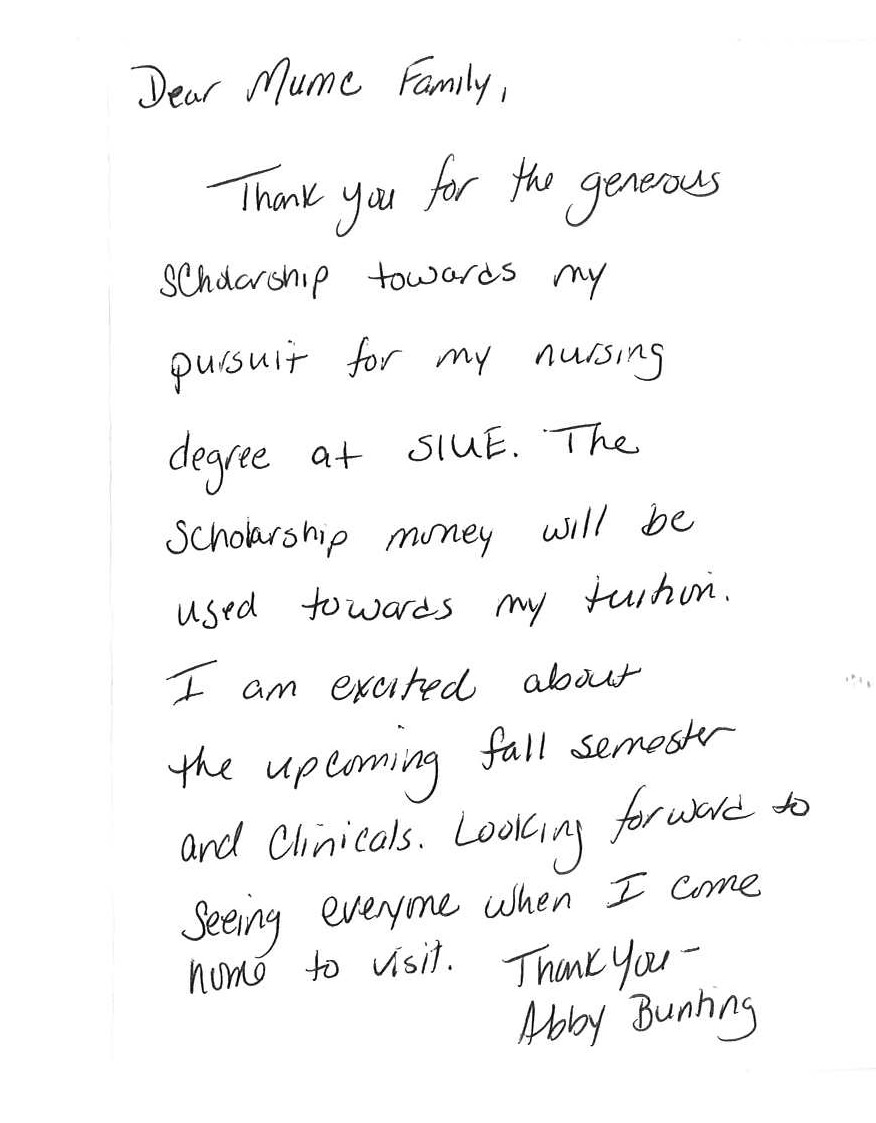 Dear Mumc Family,
Thank you for the generous
scholarship towards my
pursuit for my nursing
degree at SIUE. The
scholarship money will be
used towards my tuition.
I am excited about
the upcoming fall semester
and clinicals. Looking forward to
seeing everyone when I come
home to visit. Thank you -
Abby Bunting